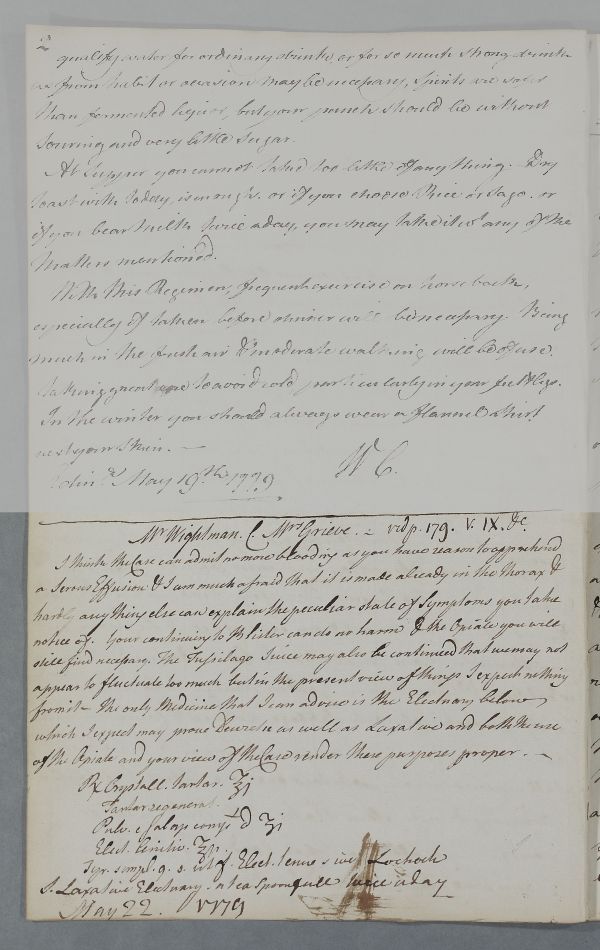 2
qualify water for ordinary drink, or for so much strong drink
as from habit or occasion may be necessary, Spirits are safer
than fermented liquor, but your punch should be without
souring and very little sugar.
At Supper you cannot take too little of any thing. Dry
toast with Toddy is enough. or if you choose Rice or Sago. or
if you bear Milk twice a day, you may take it wt. any of the
Matters mentioned.
With this Regimen, frequent exercise on horseback,
especially if taken before dinner will be necessary. Being
much in the fresh air & moderate walking will be of use.
taking great care to avoid cold particularly in your feet & legs.
In the winter you should always wear a flannel Shirt
next your Skin. —
Edinr. May 19th 1779 W C.
Mr Wightman. C. Mrs Grieve. – vid p. 179. V. IX. &c.
I think the Case can admit no more bleeding as you have reason to apprehend
a Serous Effusion & I am much afraid that it is made already in the thorax &
hardly any thing else can explain the peculiar state of Symptoms you take
notice of. Your continuing to Blister can do no harm & the Opiate you will
still find necessary. The Tussilago Juice may also be continued that we may not
appear to fluctuate too much but in the present view of things I expect nothing
from it – the only Medicine that I can advise is the Electuary below
which I expect may prove Diuretic as well as Laxative and both the use
of the Opiate and your view of the Case render these purposes proper. —
Rx Crystall. tartar. ℥j
Tartar regenerat.
Pulv. e Jalap comp. ʒj
Elect. lenitiv. ℥
Syr. simpl. q. s. ut f. Elect. tenue sive Lochoch
S. Laxative Electuary. a tea spoonfull twice a day
May 22. 1779